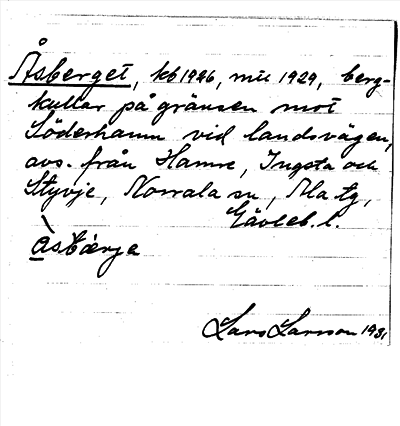 Åsberget, kb 1926, mu 1929, berg-
kullar på gränsen mot
Söderhamn vid landsvägen,
avs. från Hamre, Ingsta och
Styvje, Norrala sn, Ala tg,
Gävleb. l.
Åsbärje
Lars Larsson 1931